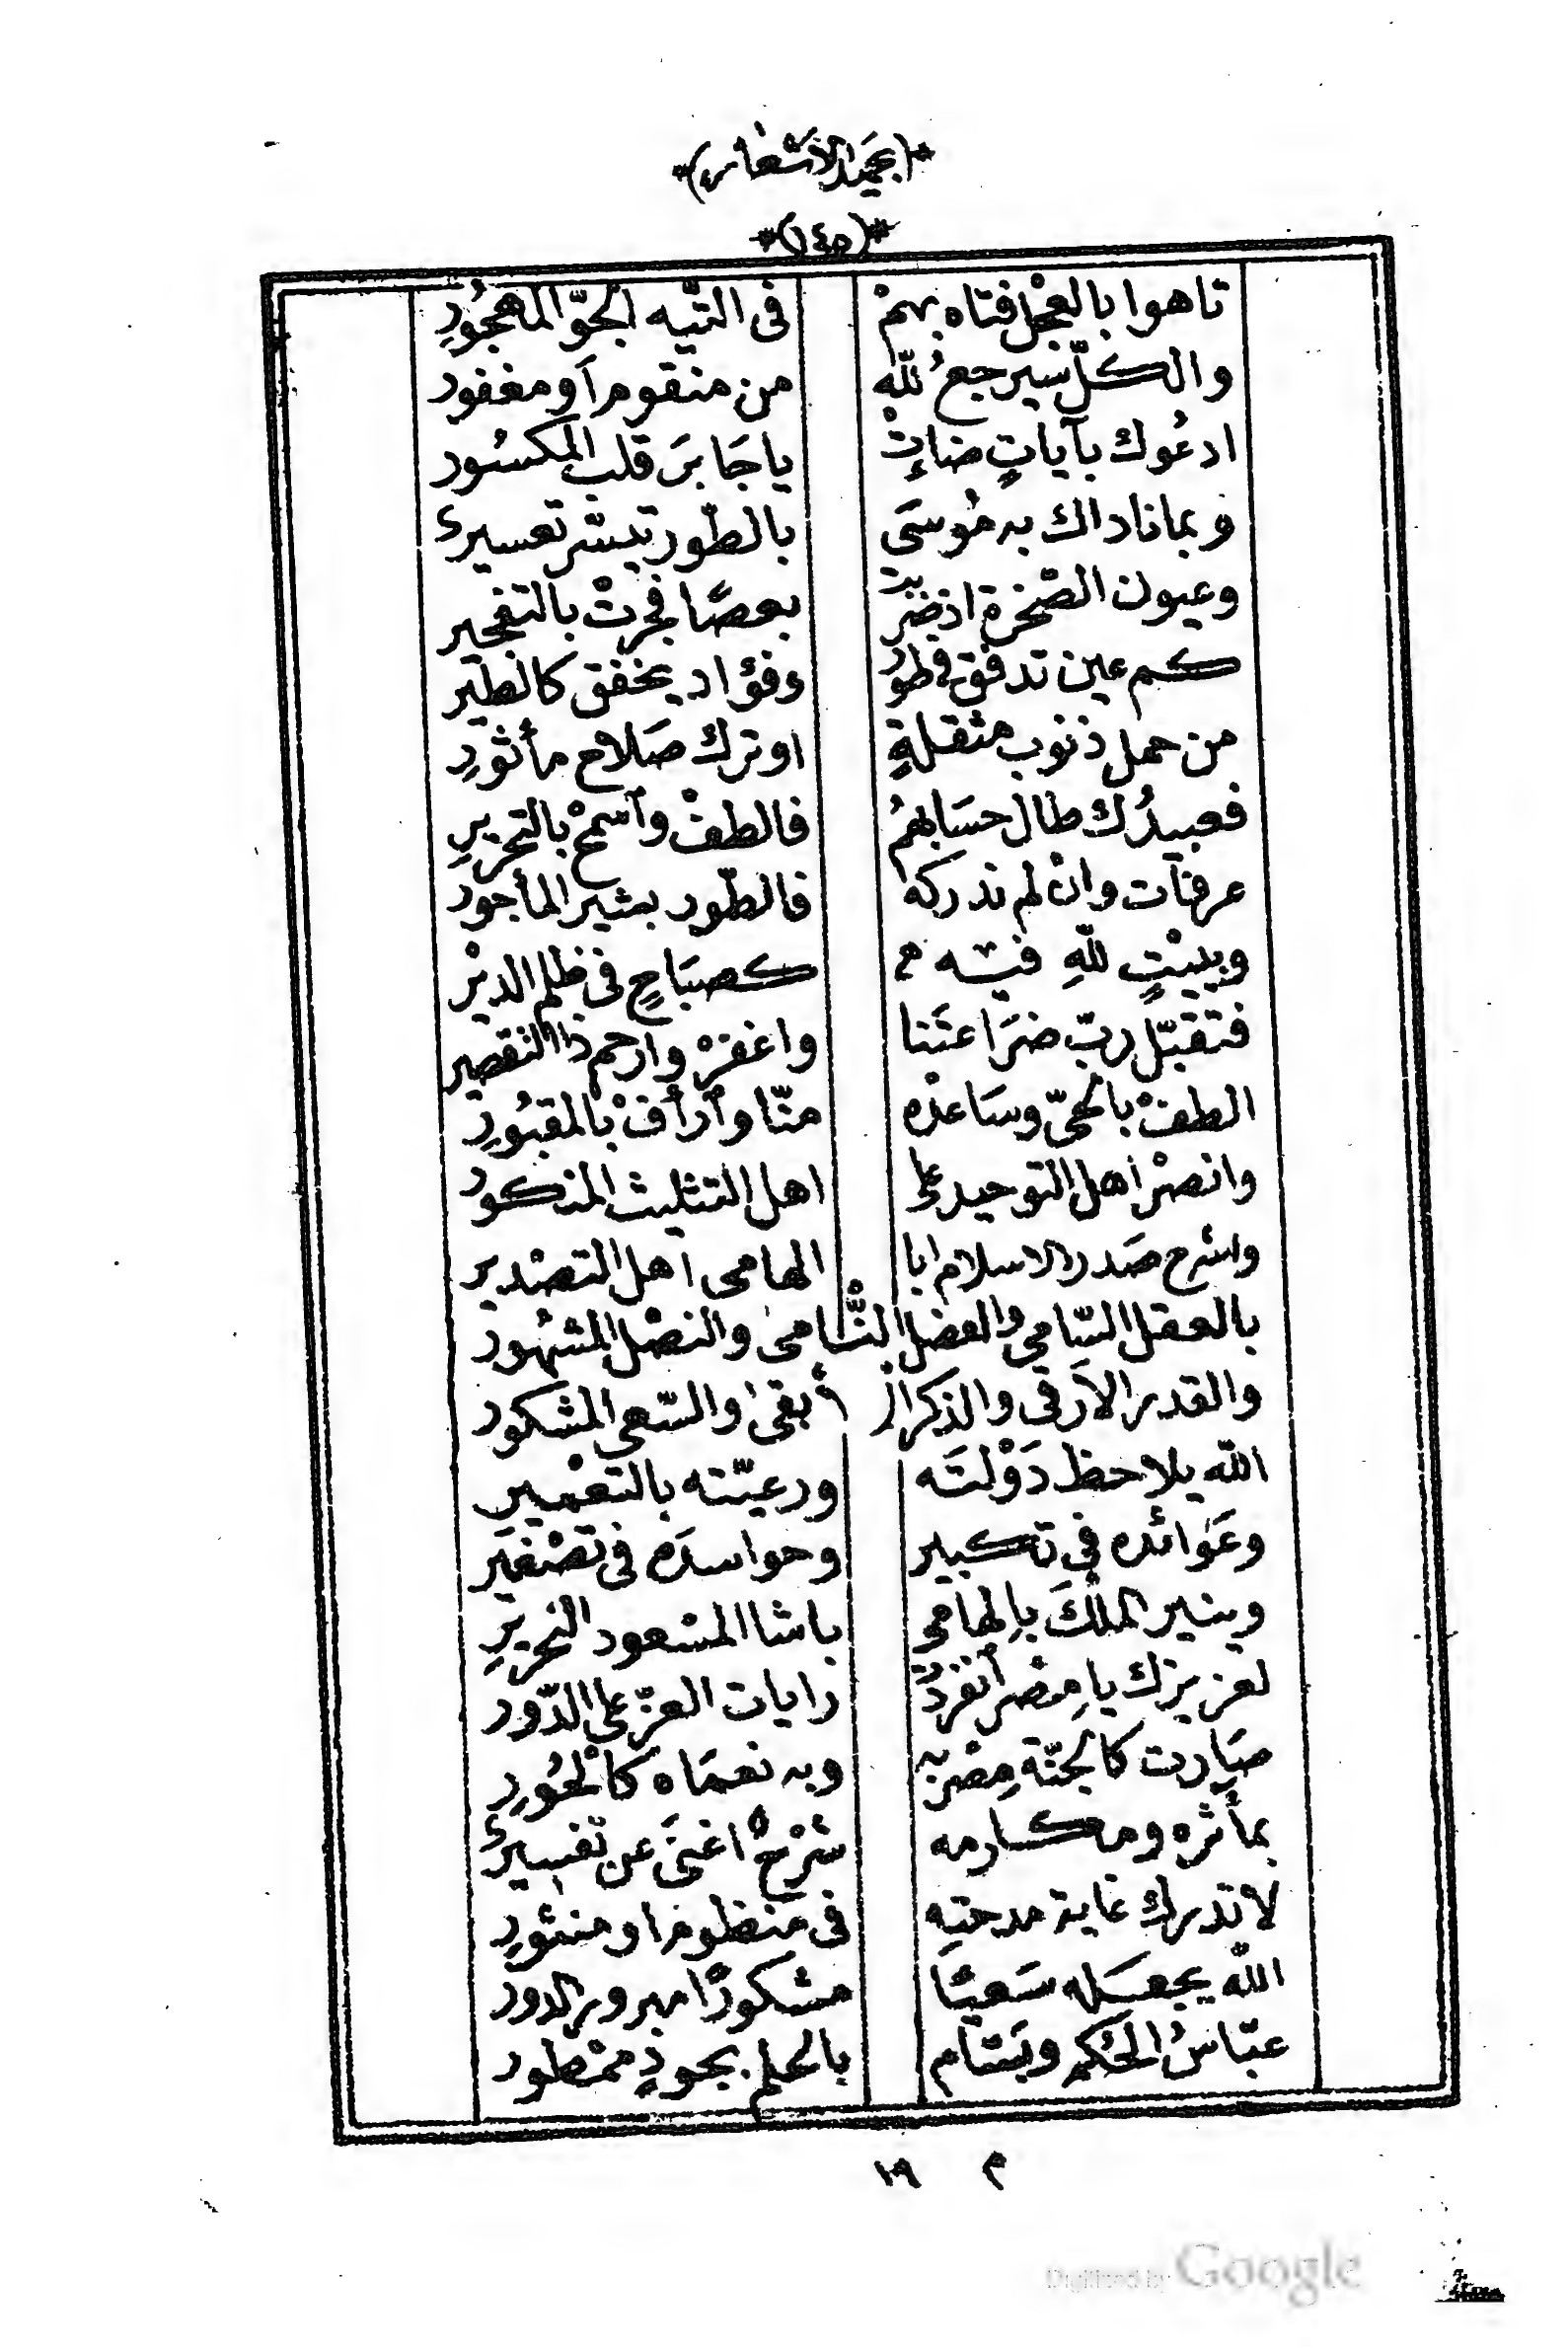 *(بحميد الأشعار)*
*(١٤٥)*
تاهوا بالعجل فتاه بهمْ في التّيه الجوّ المهجُورِ
والكلّ سيرجعُ للّه من منقوم أو مغفور
ادعُوك بآياتٍ ضاءتْ يا جَابرَ قلب المكسُور
وبما ناداك به مُوسَى بالطّور تيسّر تعسيرى
وعيون الصّخرة اذ ضربت بعصًا فجرتْ بالتفجير
كم عين تدفق في طور وفؤاد يخفق كالطير
من حمل ذنوب مثقلةٍ او ترك صَلاح مأثورِ
فعبيدُك طال حسَابهمُ فالطفْ وآسمحْ بالتحريرِ
عرفات وانْ لم ندركه فالطّور بشير المأجور
وببيْتٍ للّهِ فيه كصبَاحٍ في ظلم الديْر
فتقبّل ربّ ضرَاعتَنا واغفرْ وارحم ذا التقصير
الطفْ بالحىّ وسَاعدْه منّا وآرأفْ بالمقبُورِ
وانصرْ أهل التوحيد على اهل التثليث المنكور
واشرح صَدر الاسلام ابا الهامى اهل التصْدير
بالعقل السّامى والفضل النّامى والنصْل المشهُور
والقدر الأرقى والذكر الأبقى والسّعى المشكور
اللّه يلاحظ دَوْلتَه ورعيّته بالتعْمير
وعَوائده في تكبير وحواسده في تصْغير
وينير الملْكَ بإلهامى باشا المسْعود النحريرِ
لعزيزك يا مِصْر آنفردتْ رايات العزّ على الدّور
صَارت كالجنّة مِصْر به وبه نعمَاه كالْحُورِ
بمأثره ومكارمه شرْحٌ اغنَى عن تفسيرى
لا تدرك غاية مدحته في منظوم او منثورِ
اللّه يجعَله سَعيًا مشكورًا مبرور الدور
عبّاسُ الحُكم وبسّام بالحلم بجودٍ ممْطور
م ١٩
Digitized by Google